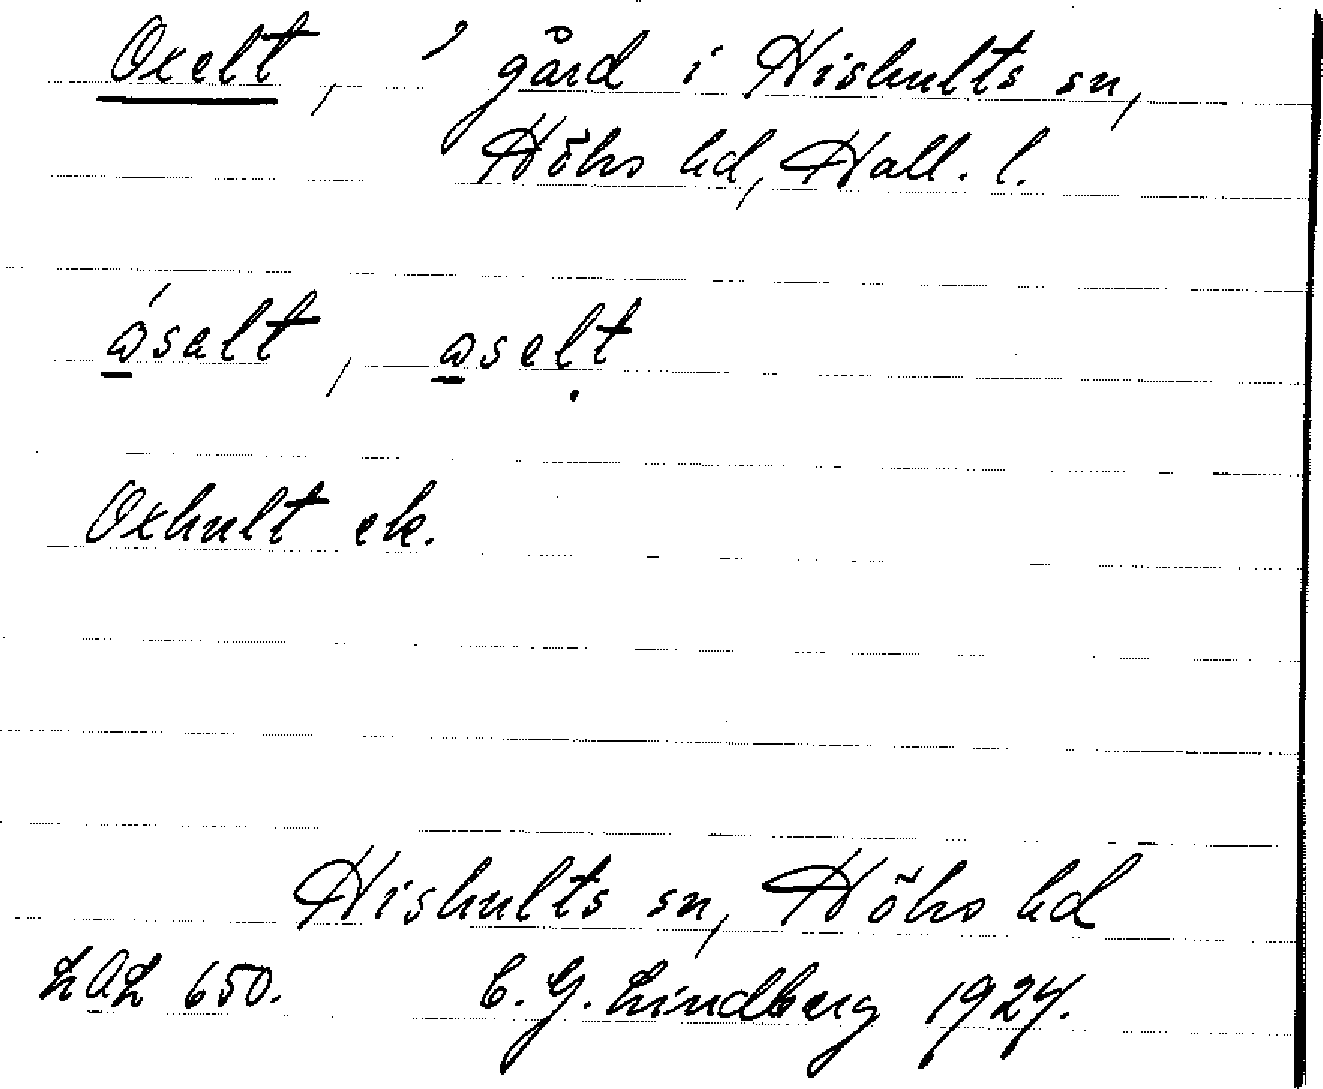 Oxelt, ' gård i Hishults sn,
Höks hd, Hall. l.
ásalt, aselt
Oxhult ek.
Hishults sn, Höks hd
LAL 650. C. G. Lindberg 1924.